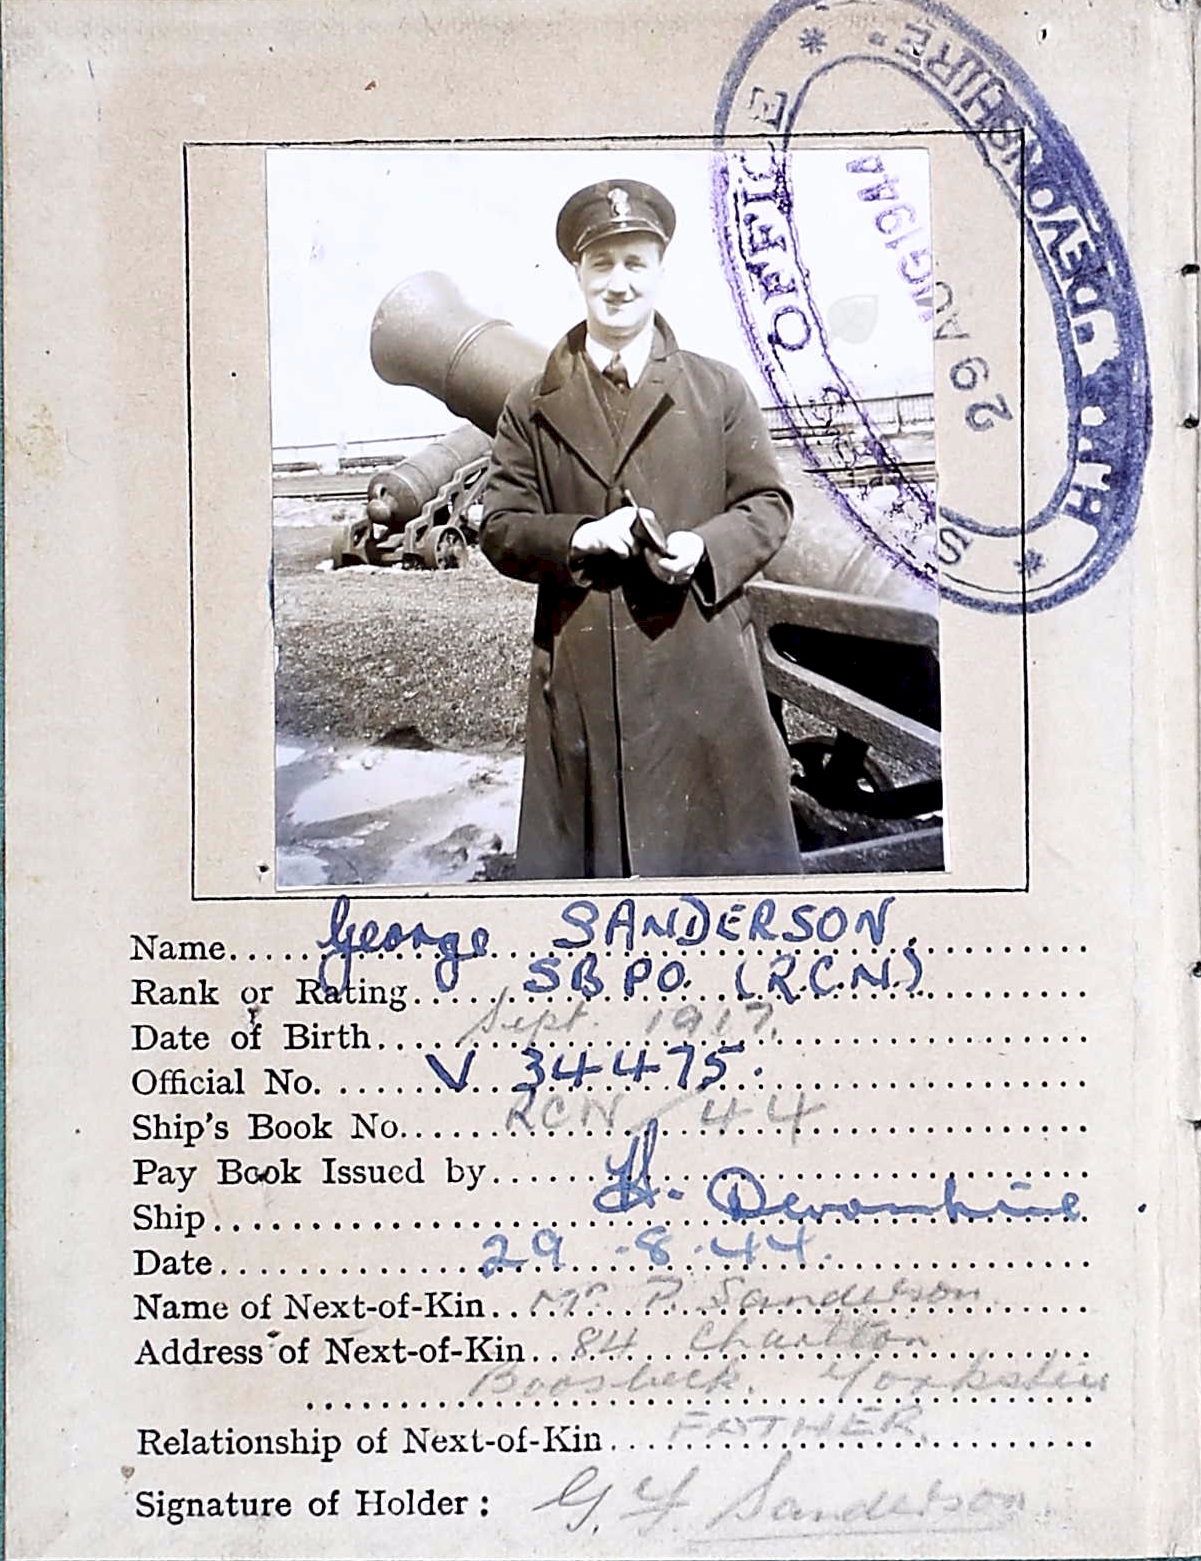 SHIP'S OFFICE * H.M.S. DEVONSHIRE. *
29 AUG 1944
Name....George SANDERSON.
Rank or Rating....SBPO. (RCN)
Date of Birth....Sept. 1917.
Official No.....V 34475.
Ship's Book No....RCN / 44
Pay Book Issued by....
Ship....H. Devonshire.
Date....29.8.44.
Name of Next-of-Kin..Mr. P. Sanderson
Address of Next-of-Kin..84 Charlton
Boosbeck. Yorkshire
Relationship of Next-of-Kin....FATHER.
Signature of Holder: G. Y. Sanderson.